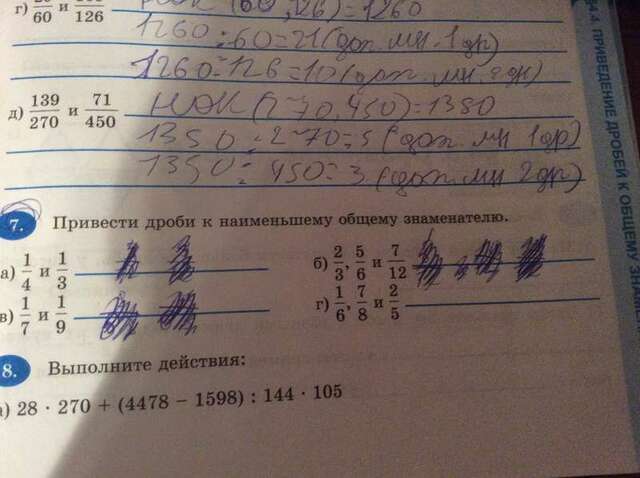 г) 60 и 126 НОК (60, 126) = 1260
1260 : 60 = 21 (доп. мн. 1 др)
1260 : 126 = 10 (доп. мн. 2 др)
д) 139/270 и 71/450 НОК (270, 450) = 1350
1350 : 270 = 5 (доп. мн 1 др)
1350 : 450 = 3 (доп. мн 2 др)
7. Привести дроби к наименьшему общему знаменателю.
а) 1/4 и 1/3 б) 2/3, 5/6 и 7/12
в) 1/7 и 1/9 г) 1/6, 7/8 и 2/5
8. Выполните действия:
а) 28 · 270 + (4478 − 1598) : 144 · 105
ПРИВЕДЕНИЕ ДРОБЕЙ К ОБЩЕМУ